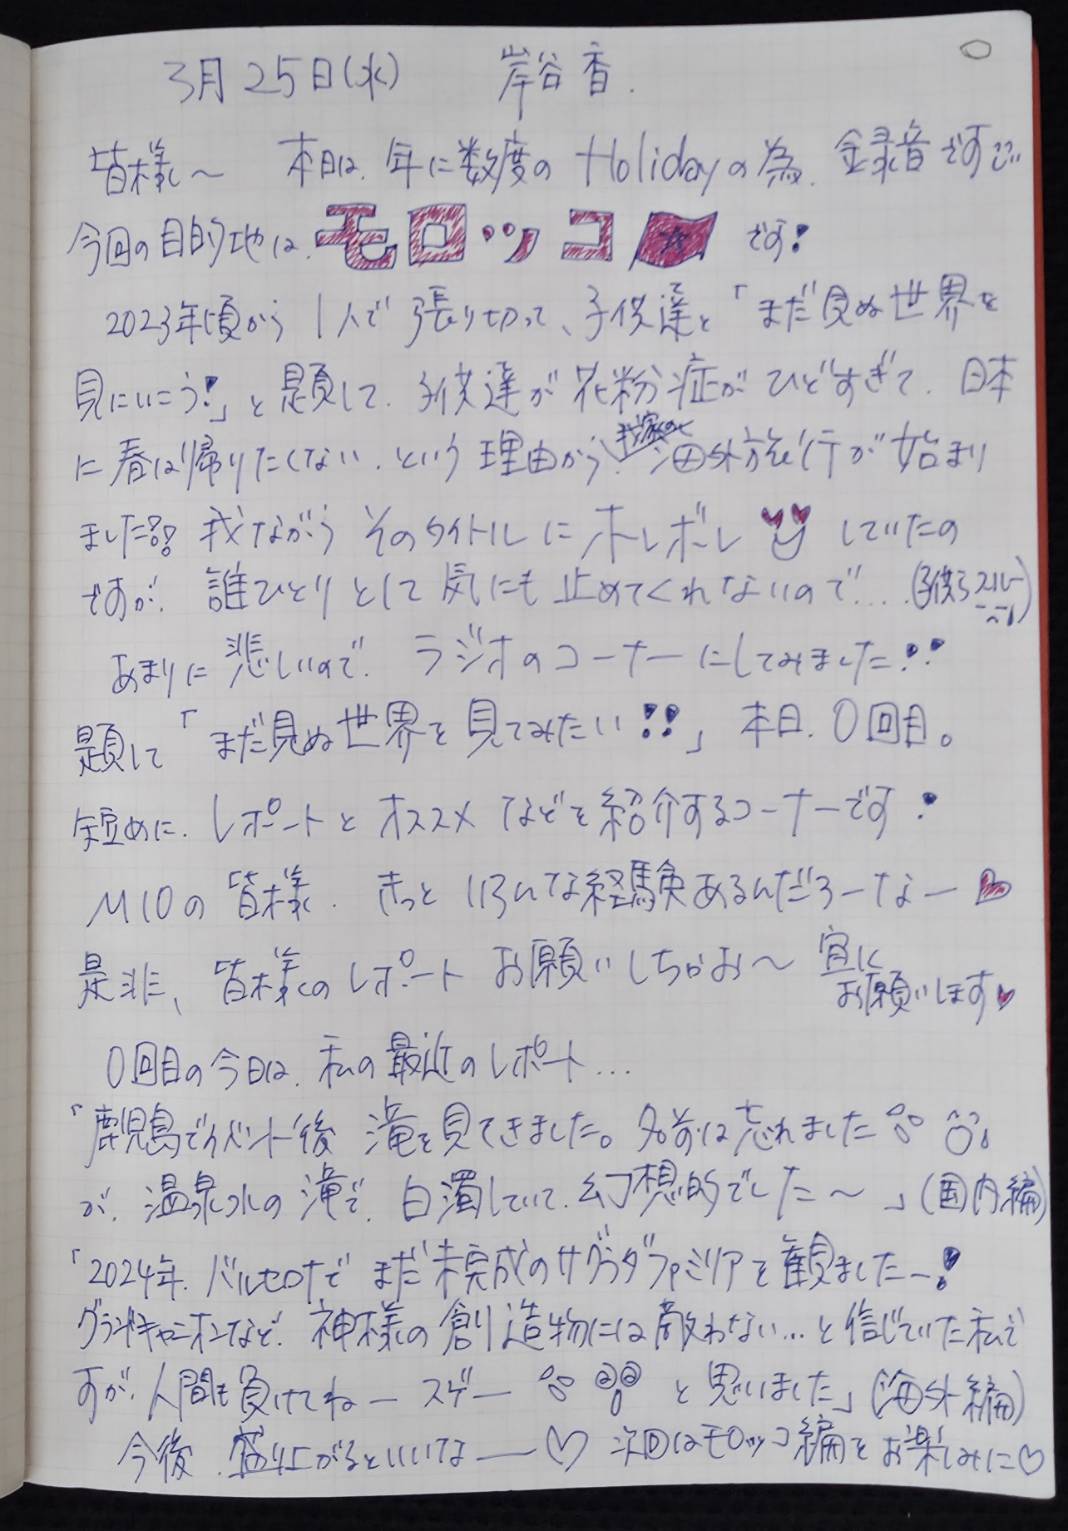 3月25日(水) 岸谷香.
皆様〜 本日は、年に数度の Holidayの為、録音です
今回の目的地は、モロッコ です!
2023年頃から 1人で 張り切って、子供達と「まだ見ぬ世界を
見にいこう!」と題して、子供達が花粉症がひどすぎて、日本
に春は帰りたくない、という理由から、我家の海外旅行が始まり
ました!! 我ながら そのタイトルに ホレボレ していたの
ですが、誰ひとりとして気にも止めてくれないので… (子供らスルー)
あまりに悲しいので、ラジオのコーナーにしてみました!!
題して「まだ見ぬ世界を見てみたい!!」本日、0回目。
短めに、レポートとオススメなどを紹介するコーナーです!
M10の皆様、きっといろんな経験あるんだろーなー
是非、皆様のレポートお願いしちゃお〜 宜しく
お願いします♥
0回目の今日は、私の最近のレポート…
「鹿児島でイベント後 滝を見てきました。名前は忘れました
が、温泉水の滝で、白濁していて、幻想的でした〜」(国内編)
「2024年、バルセロナでまだ未完成のサグラダファミリアを観ましたー!
グランドキャニオンなど、神様の創造物には敵わない…と信じていた私で
すが、人間も負けてねースゲー と思いました」(海外編)
今後、盛り上がるといいなー♡ 次回はモロッコ編をお楽しみに♡